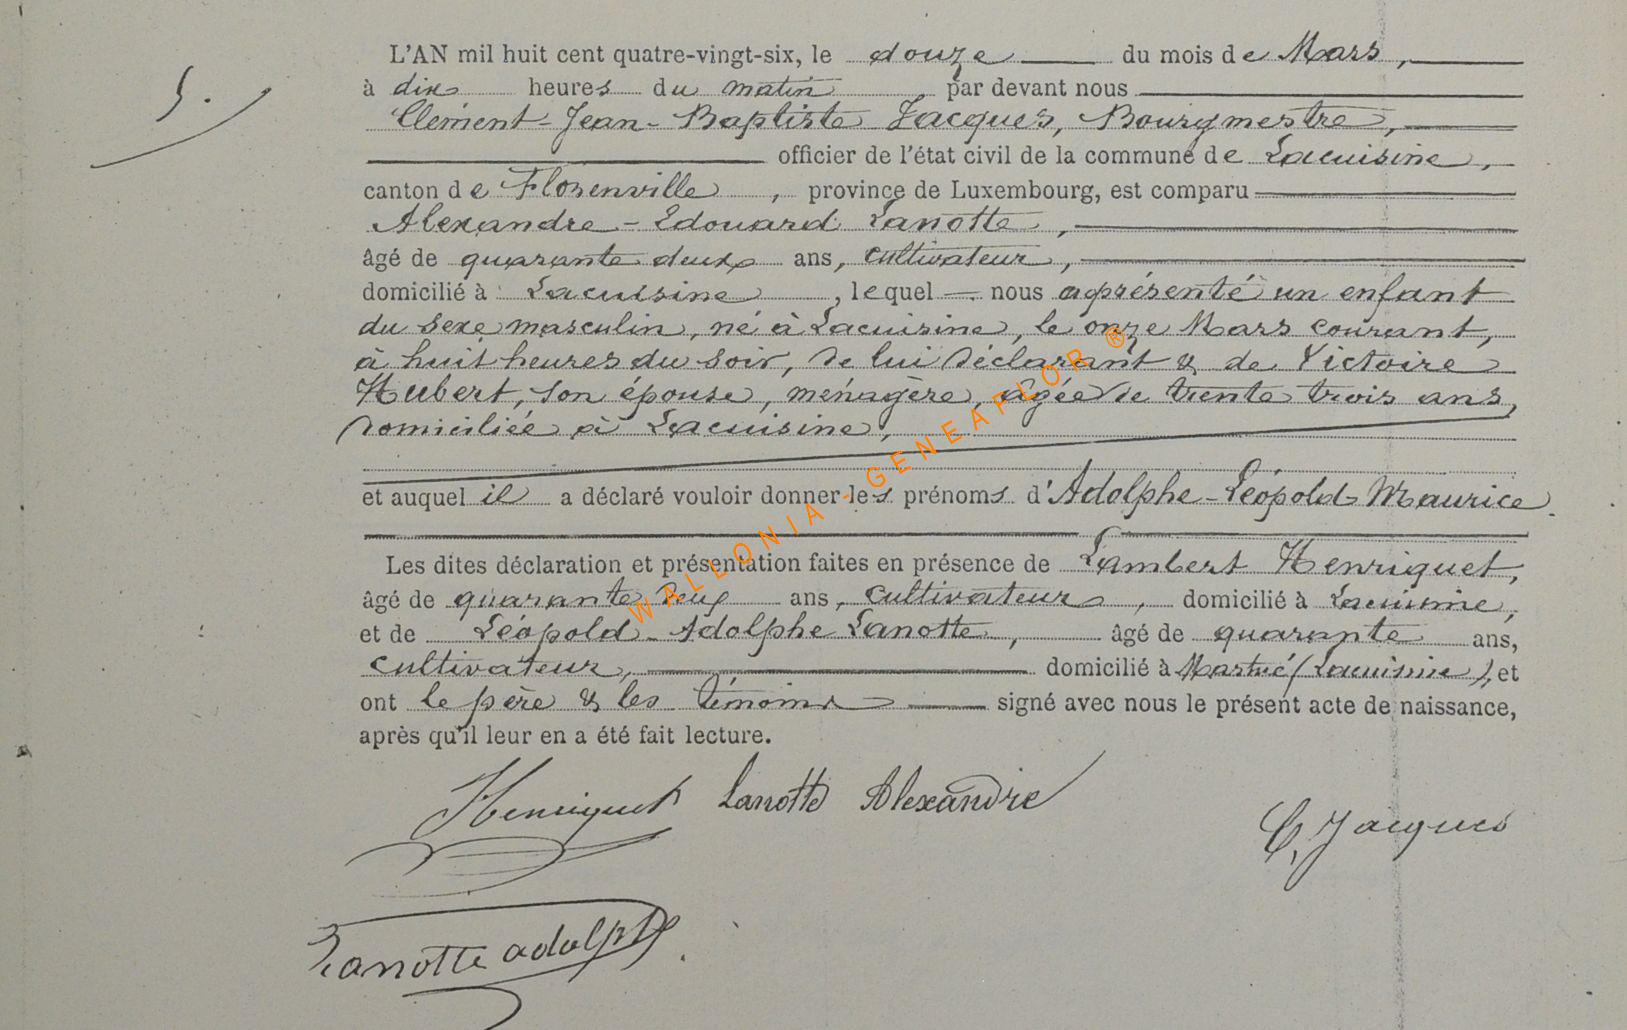 5.
L'AN mil huit cent quatre-vingt-six, le douze du mois de Mars,
à dix heures du matin par devant nous
Clément-Jean-Baptiste Jacques, Bourgmestre,
officier de l'état civil de la commune de Lacuisine,
canton de Florenville, province de Luxembourg, est comparu
Alexandre-Edouard Lanotte,
âgé de quarante deux ans, cultivateur,
domicilié à Lacuisine, lequel nous a présenté un enfant
du sexe masculin, né à Lacuisine, le onze Mars courant,
à huit heures du soir, de lui déclarant & de Victoire
Hubert, son épouse, ménagère, âgée de trente trois ans,
domiciliée à Lacuisine,
et auquel il a déclaré vouloir donner les prénoms d'Adolphe-Léopold-Maurice.
Les dites déclaration et présentation faites en présence de Lambert Henriquet,
âgé de quarante deux ans, cultivateur, domicilié à Lacuisine,
et de Léopold-Adolphe Lanotte, âgé de quarante ans,
cultivateur, domicilié à Martué (Lacuisine), et
ont le père & les témoins signé avec nous le présent acte de naissance,
après qu'il leur en a été fait lecture.
Henriquet Lanotte Alexandre
C. Jacques
Lanotte adolphe
WALLONIA - GENEAFLOR ®